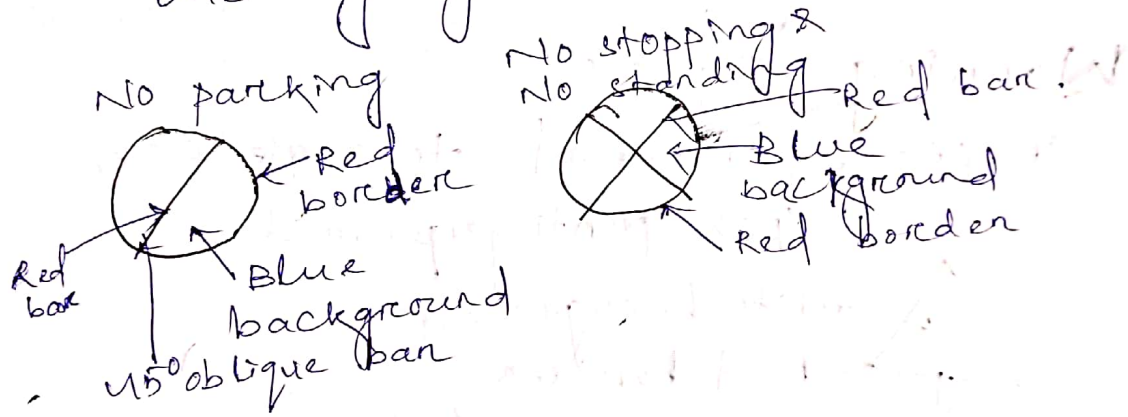 No parking
Red
border
Red
bar
Blue
background
45° oblique bar
No stopping &
No standing
Red bar.
Blue
background
Red border